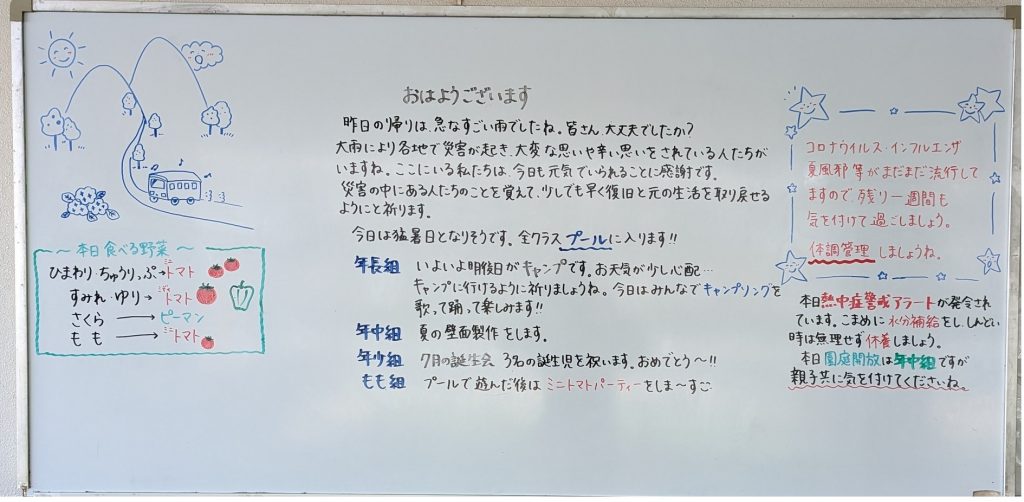 おはようございます
昨日の帰りは、急なすごい雨でしたね。皆さん、大丈夫でしたか?
大雨により各地で災害が起き、大変な思いや辛い思いをされている人たちが
いますね。ここにいる私たちは、今日も元気でいられることに感謝です。
災害の中にある人たちのことを覚えて、少しでも早く復旧と元の生活を取り戻せる
ようにと祈ります。
今日は猛暑日となりそうです。全クラスプールに入ります!!
年長組 いよいよ明後日がキャンプです。お天気が少し心配…
キャンプに行けるように祈りましょうね。今日はみんなでキャンプソングを
歌って踊って楽しみます!!
年中組 夏の壁面製作をします。
年少組 7月の誕生会 3名の誕生児を祝います。おめでとう〜!!
もも組 プールで遊んだ後はミニトマトパーティーをしま〜す
〜本日食べる野菜〜
ひまわり・ちゅうりっぷ→ミニトマト
すみれ・ゆり→ミニトマト
さくら→ピーマン
もも→ミニトマト
コロナウイルス・インフルエンザ
夏風邪等がまだまだ流行して
ますので、残り一週間も
気を付けて過ごしましょう。
体調管理しましょうね。
本日熱中症警戒アラートが発令され
ています。こまめに水分補給をし、しんどい
時は無理せず休養しましょう。
本日園庭開放は年中組ですが
親子共に気を付けてくださいね。